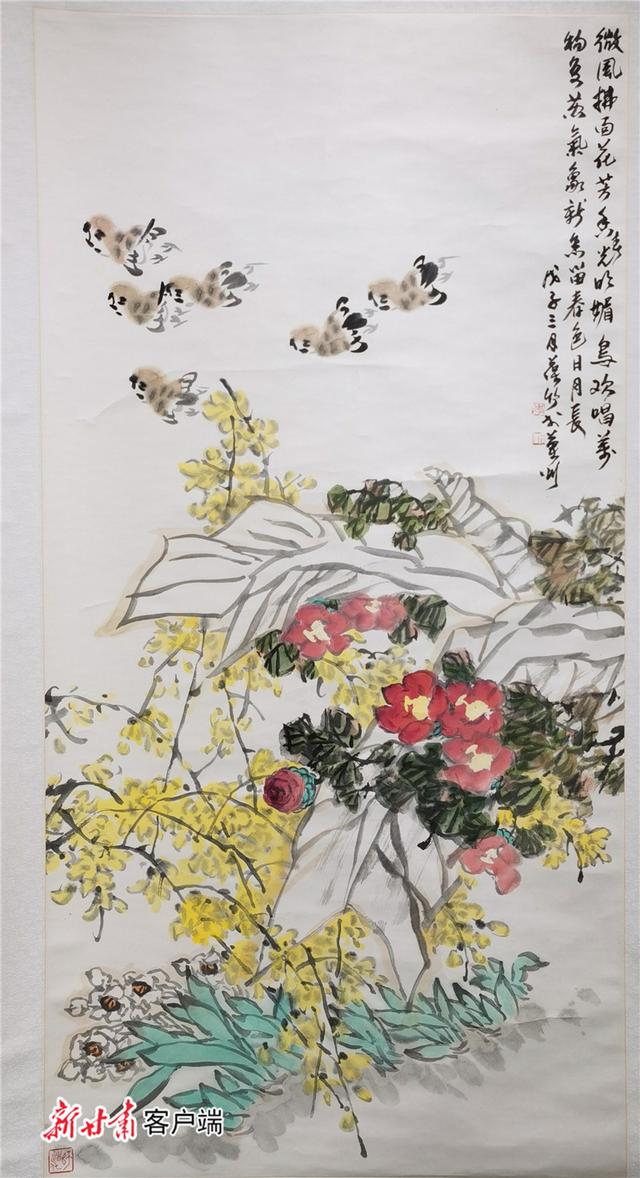 微風拂面花芳香春光明媚鳥欢唱萬
物复苏氣象新留春色日月長
戊子三月
新甘肃客户端